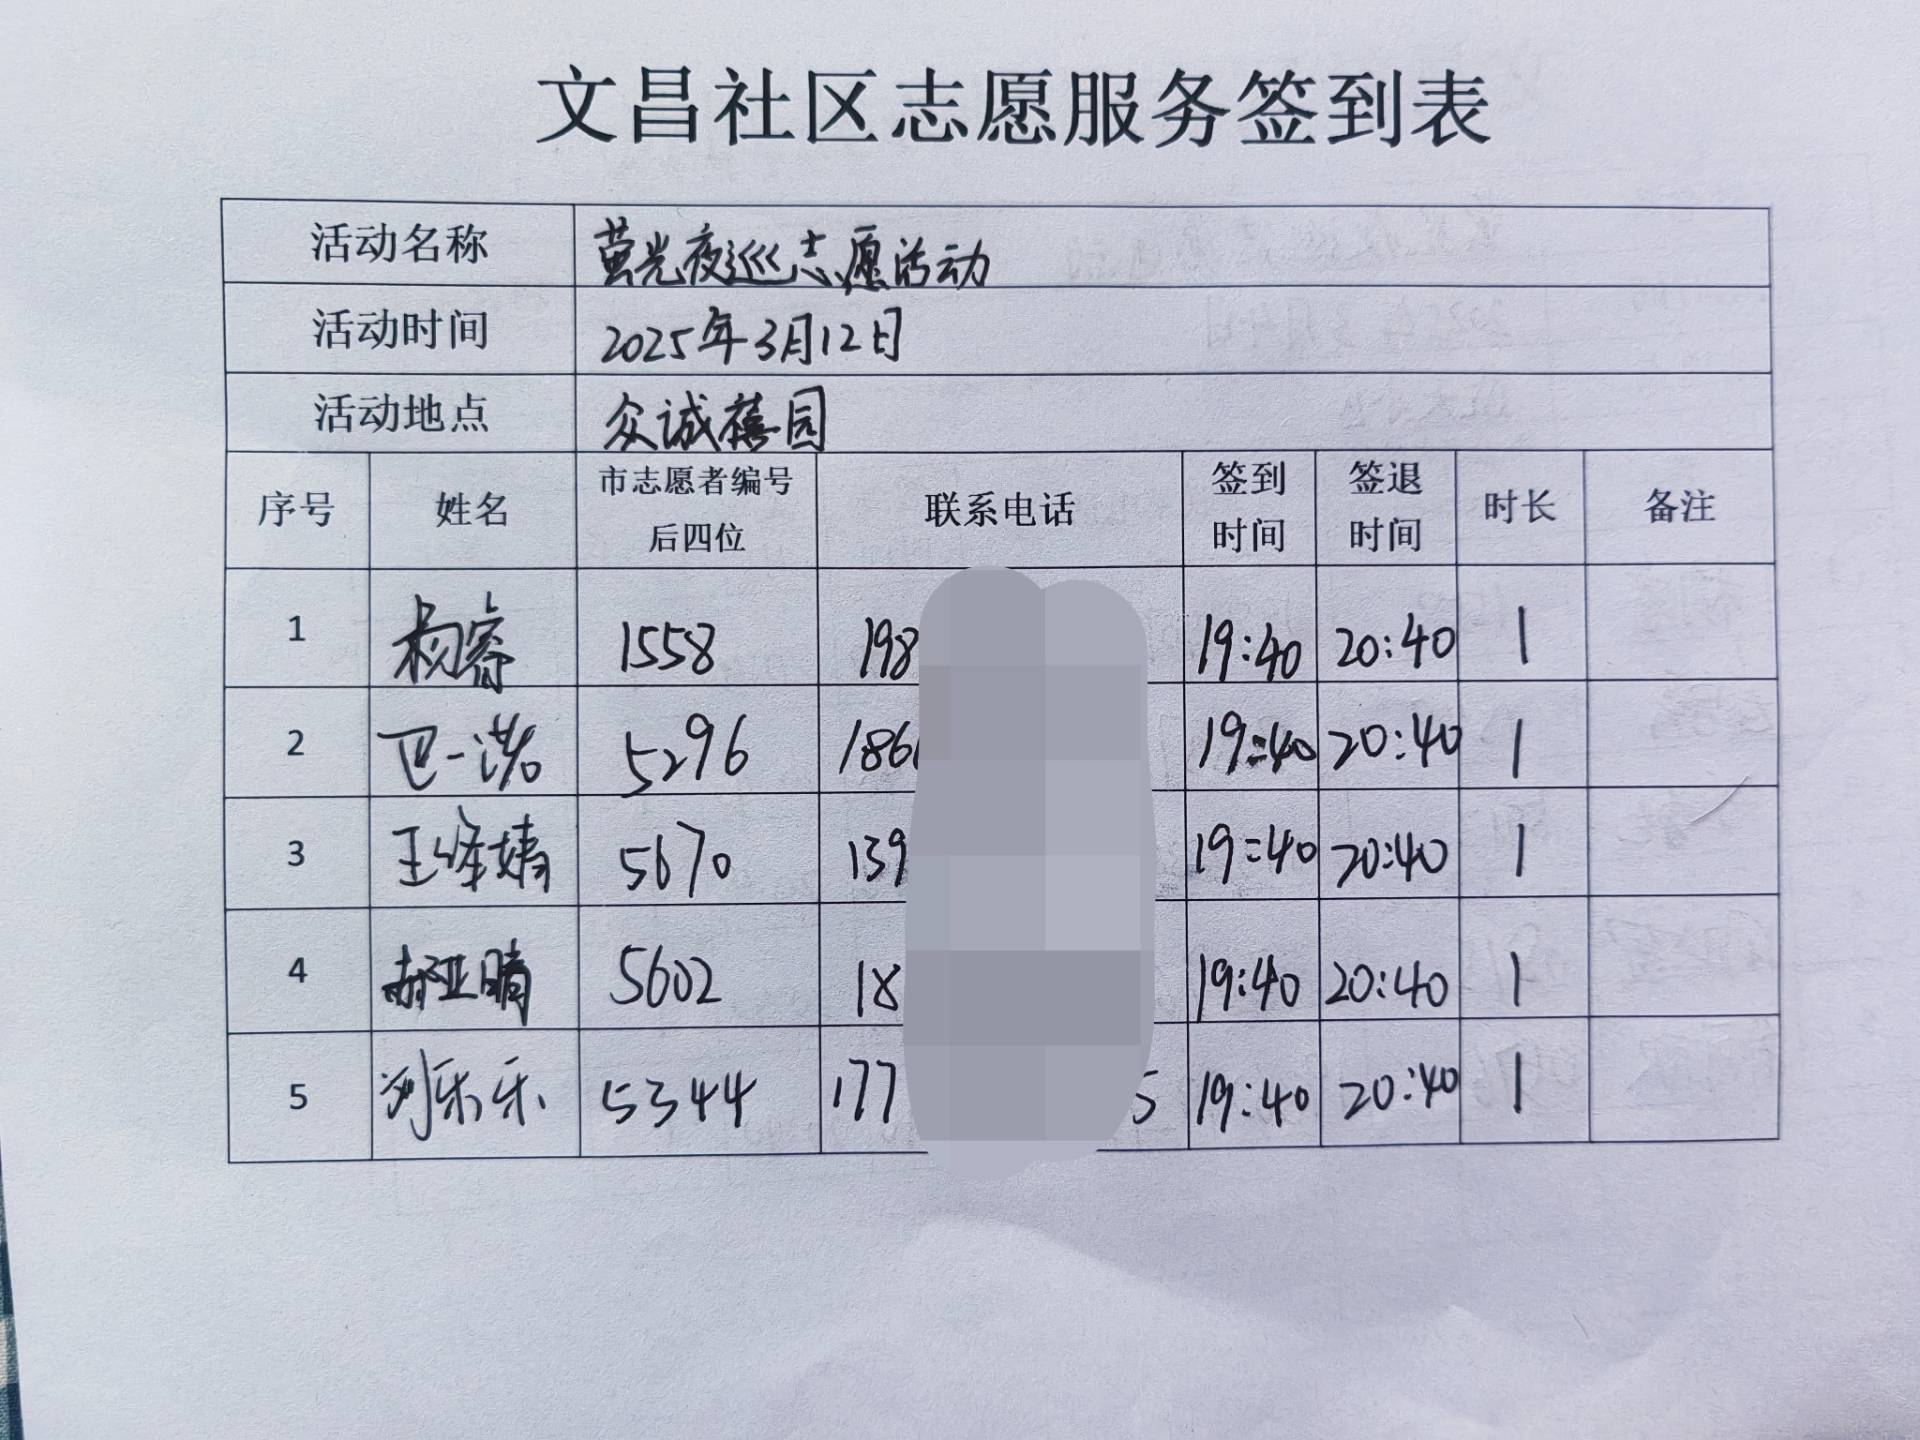 文昌社区志愿服务签到表
活动名称 萤光夜巡志愿活动
活动时间 2025年3月12日
活动地点 众诚禧园
序号 姓名 市志愿者编号后四位 联系电话 签到时间 签退时间 时长 备注
1 杨睿 1558 198 19:40 20:40 1
2 卫一诺 5296 186 19:40 20:40 1
3 王绛婧 5670 139 19:40 20:40 1
4 郝亚晴 5602 18 19:40 20:40 1
5 刘乐乐 5344 177 5 19:40 20:40 1